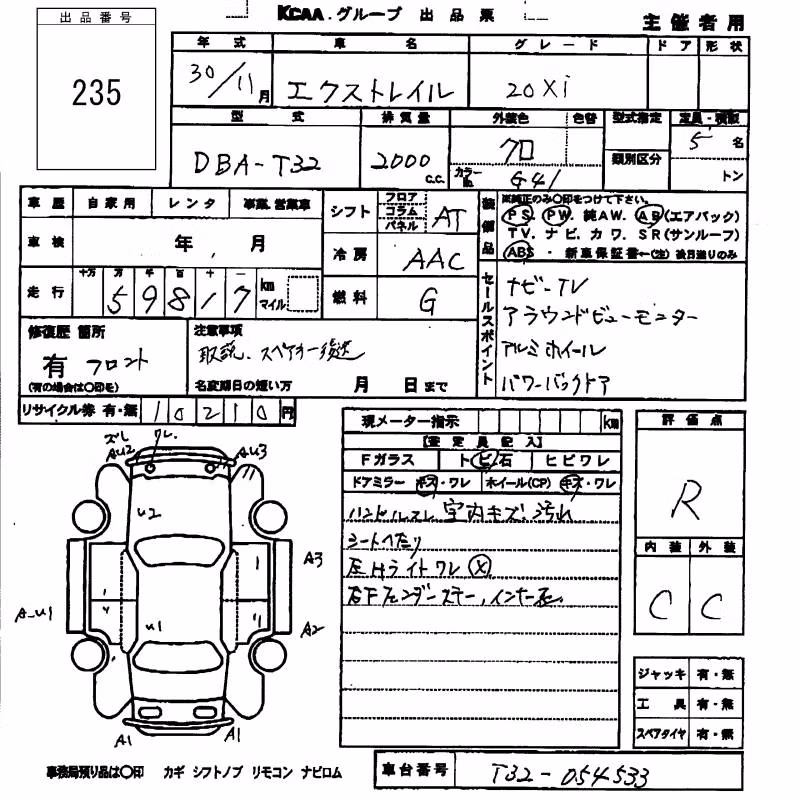 出品番号
235
KCAA.グループ 出品票
主催者用
年式 車名 グレード ドア 形状
30/11月 エクストレイル 20Xi
型式 排気量 外装色 色替 型式指定 定員・積載
DBA-T32 2000 c.c. クロ 5名
カラーNo. G41 類別区分 トン
車歴 自家用 レンタ 事業、営業車
シフト フロア コラム パネル AT
装備品 ※純正のみ〇印をつけて下さい。
PS. PW. 純AW. AB(エアバック)
TV. ナビ. カワ. SR(サンルーフ)
ABS ・ 新車保証書←(注) 後日送りのみ
車検 年 月
冷房 AAC
走行 十万 万 千 百 十 一
59817 km マイル
燃料 G
セールスポイント
ナビーTV
アラウンドビューモニター
アルミホイール
パワーバックドア
修復歴 箇所
有 フロント
(有の場合は〇印を)
注意事項
取説、スペアキー後送
名変期日の短い方 月 日まで
リサイクル券 有・無 10210円
現メーター指示 km
【査定員記入】
Fガラス トビ石 ヒビワレ
ドアミラー キズ・ワレ ホイール(CP) キズ・ワレ
ハンドルスレ 室内キズ汚れ
シートヘたり
左Hライトワレ X
右Fフェンダーステー、インナー
評価点
R
内装 外装
C C
ズレ ワレ
AU2 AU3
U2
A3
A-U1
U1
A2
A1 A1
ジャッキ 有・無
工具 有・無
スペアタイヤ 有・無
事務局預り品は〇印 カギ シフトノブ リモコン ナビロム
車台番号 T32-054533